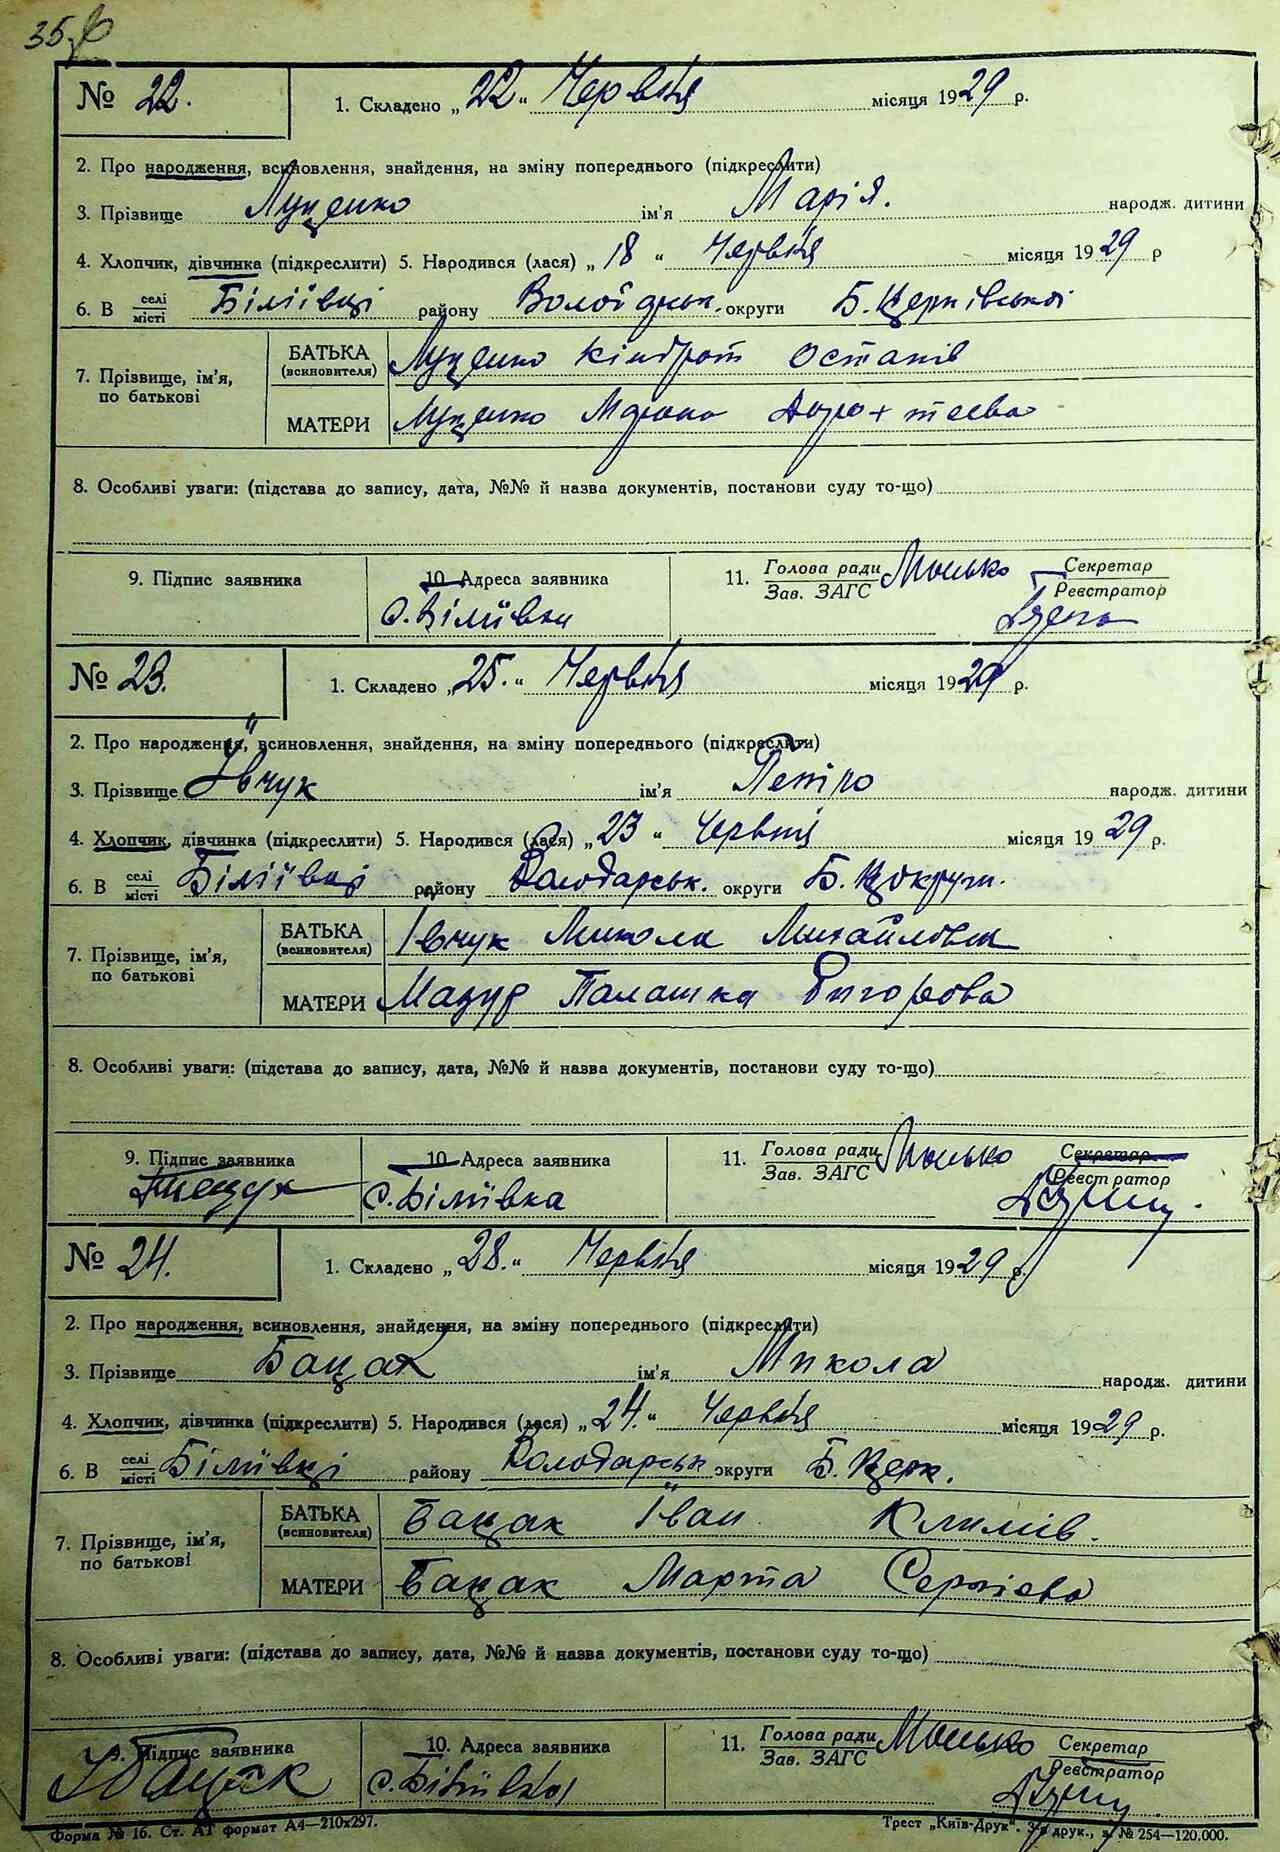 35
№ 22. 1. Складено „22“ Червня місяця 1929 р.
2. Про народження, всиновлення, знайдення, на зміну попереднього (підкреслити)
3. Прізвище Луценко ім'я Марія. народж. дитини
4. Хлопчик, дівчинка (підкреслити) 5. Народився (лася) „18“ Червня місяця 1929 р
6. В селі місті Біліївці району округи Б. Церківської
7. Прізвище, ім'я, по батькові БАТЬКА (всиновителя) Луценко Кіндрат Остапів
МАТЕРИ Луценко
8. Особливі уваги: (підстава до запису, дата, №№ й назва документів, постанови суду то-що)
9. Підпис заявника 10. Адреса заявника 11. Голова ради Зав. ЗАГС Монько Секретар Реєстратор
с. Біліївка
№ 23. 1. Складено „25.“ Червня місяця 1929 р.
2. Про народження, всиновлення, знайдення, на зміну попереднього (підкреслити)
3. Прізвище Івчук ім'я Петро народж. дитини
4. Хлопчик, дівчинка (підкреслити) 5. Народився (лася) „23“ Червня місяця 1929 р.
6. В селі місті Біліївці району Володарськ. округи Б. Ц округи.
7. Прізвище, ім'я, по батькові БАТЬКА (всиновителя) Івчук Микола Михайлович
МАТЕРИ Мазур Палашка Григорова
8. Особливі уваги: (підстава до запису, дата, №№ й назва документів, постанови суду то-що)
9. Підпис заявника 10. Адреса заявника 11. Голова ради Зав. ЗАГС Монько Секретар Реєстратор
с. Біліївка
№ 24. 1. Складено „28.“ Червня місяця 1929 р.
2. Про народження, всиновлення, знайдення, на зміну попереднього (підкреслити)
3. Прізвище Бацак ім'я Микола народж. дитини
4. Хлопчик, дівчинка (підкреслити) 5. Народився (лася) „24.“ Червня місяця 1929 р.
6. В селі місті Біліївці району Володарськ округи Б. Церк.
7. Прізвище, ім'я, по батькові БАТЬКА (всиновителя) Бацак Іван Климів.
МАТЕРИ Бацак Марта Сергієва
8. Особливі уваги: (підстава до запису, дата, №№ й назва документів, постанови суду то-що)
9. Підпис заявника 10. Адреса заявника 11. Голова ради Зав. ЗАГС Монько Секретар Реєстратор
Бацак с. Біліївка
Форма № 16. Ст. АТ формат А4—210х297. Трест „Київ-Друк“. друк., № 254—120.000.